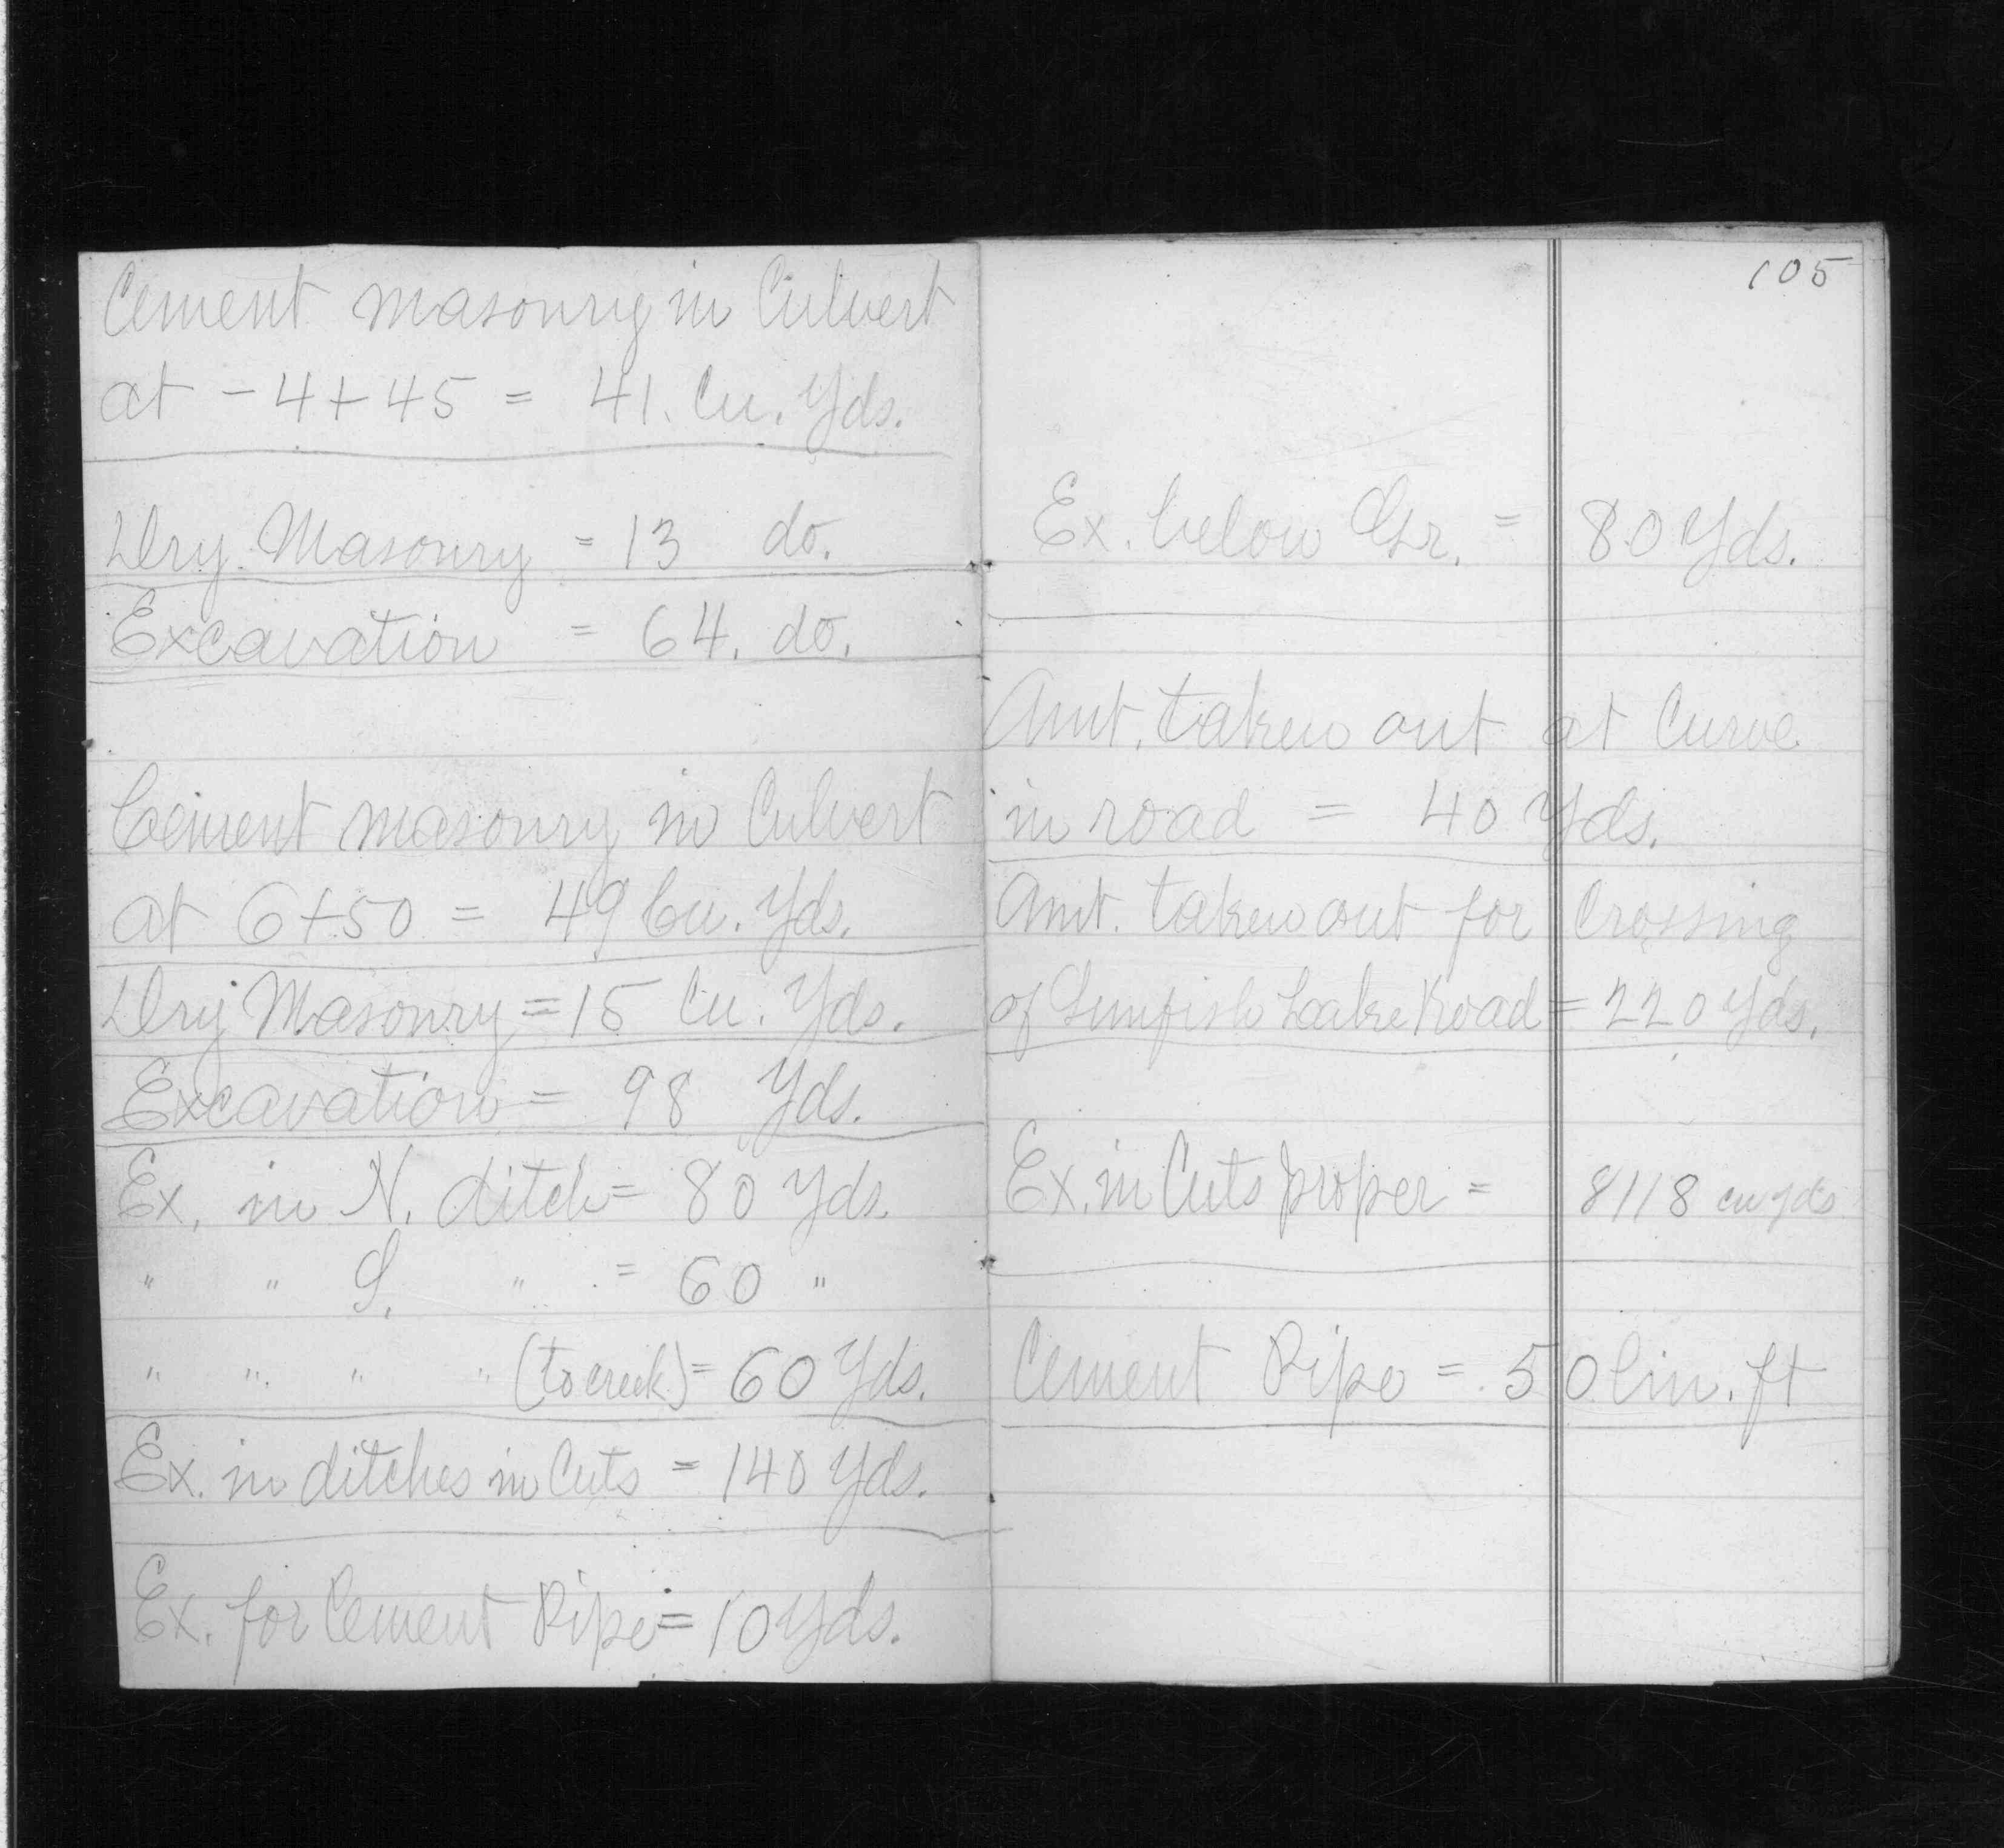 Cement masonry in Culvert
at - 4+45 = 41. Cu. Yds.
Dry Masonry = 13 do.
Excavation = 64. do.
Cement masonry in Culvert
at 6+50 = 49 Cu. Yds.
Dry Masonry = 15 Cu. Yds.
Excavation = 98 Yds.
Ex. in N. ditch = 80 Yds.
" " S. " = 60 "
" " " " (to creek) = 60 Yds.
Ex. in ditches in Cuts = 140 Yds.
Ex. for Cement Pipe = 10 Yds.
105
Ex. below Gr. = 80 Yds.
Amt. taken out at Curve
in road = 40 Yds.
Amt. taken out for Crossing
of Sunfish Lake Road = 220 Yds.
Ex. in Cuts proper = 8118 cu yds
Cement Pipe = 50 lin. ft